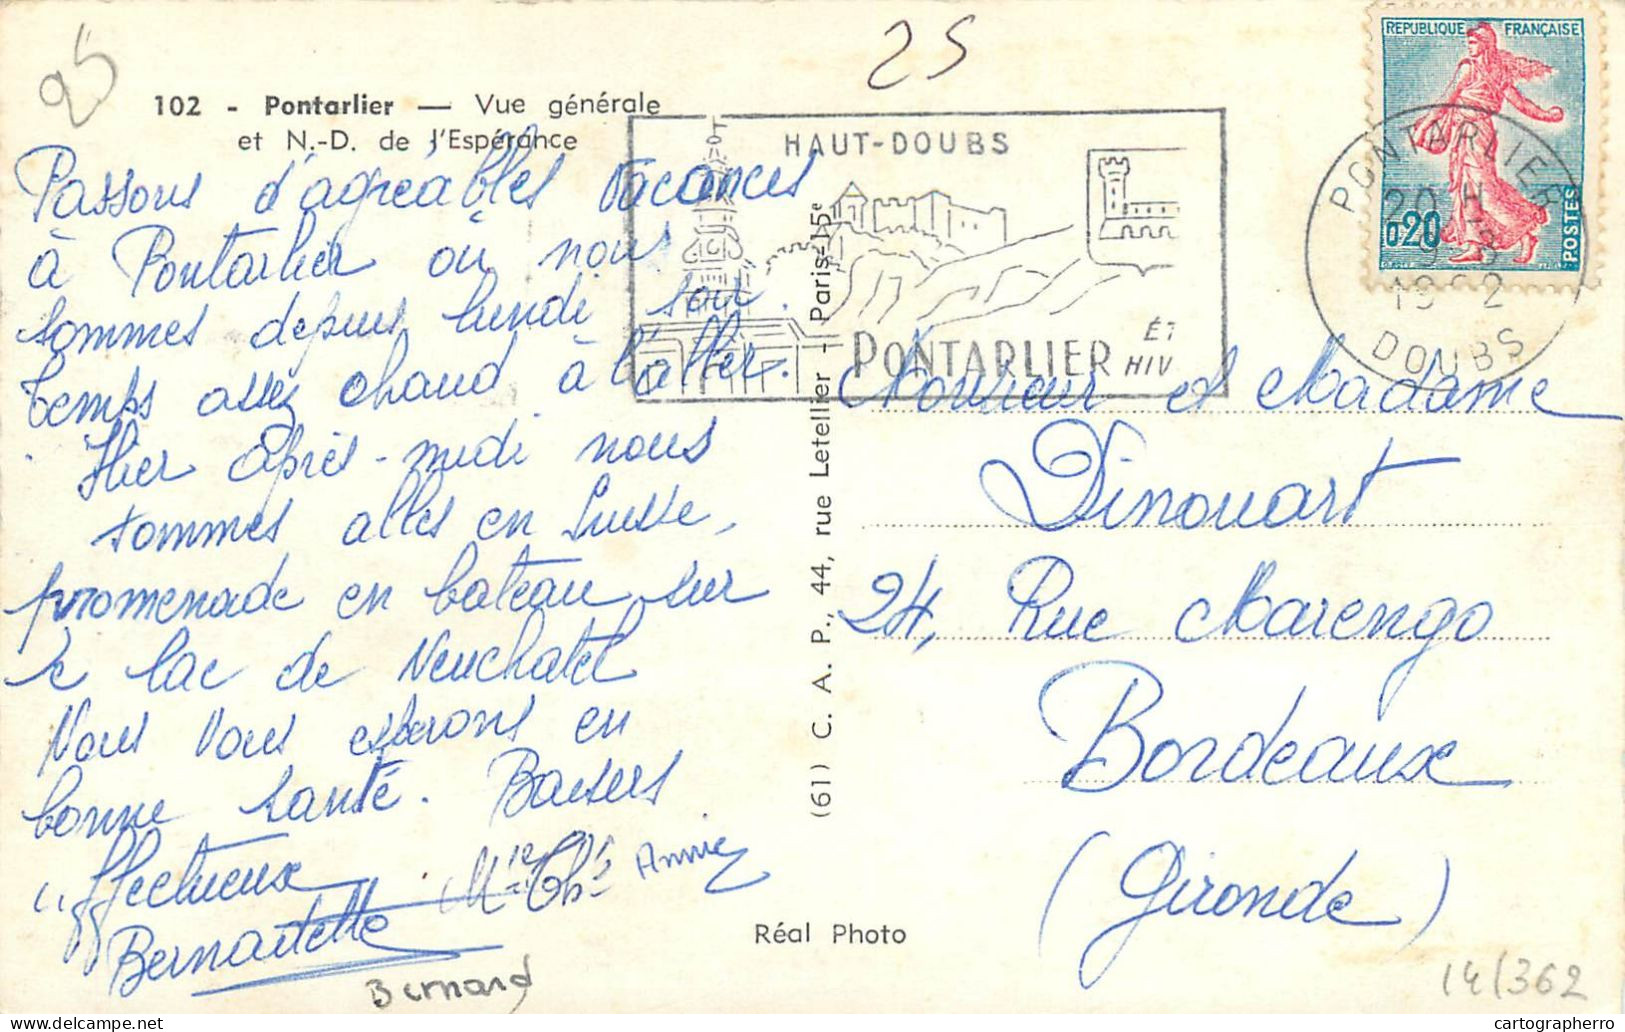 25
25
102 - Pontarlier — Vue générale
et N.-D. de l'Espérance
Passons d'agréables vacances
à Pontarlier où nous
sommes depuis lundi soir.
Temps assez chaud à l'aller.
Hier après-midi nous
sommes allés en Suisse,
promenade en bateau sur
le lac de Neuchatel
Nous vous espérons en
bonne santé. Baisers
affectueux
Bernadette
Mie Ths
Annie
Bernard
HAUT-DOUBS
PONTARLIER
ÉT
HIV
(61) C. A. P., 44, rue Letellier - Paris-15e
REPUBLIQUE FRANÇAISE
0,20
POSTES
PONTARLIER
20 H
1962
DOUBS
Monsieur et Madame
Dinouart
24, Rue Marengo
Bordeaux
(Gironde)
Réal Photo
14/362
cartographerro